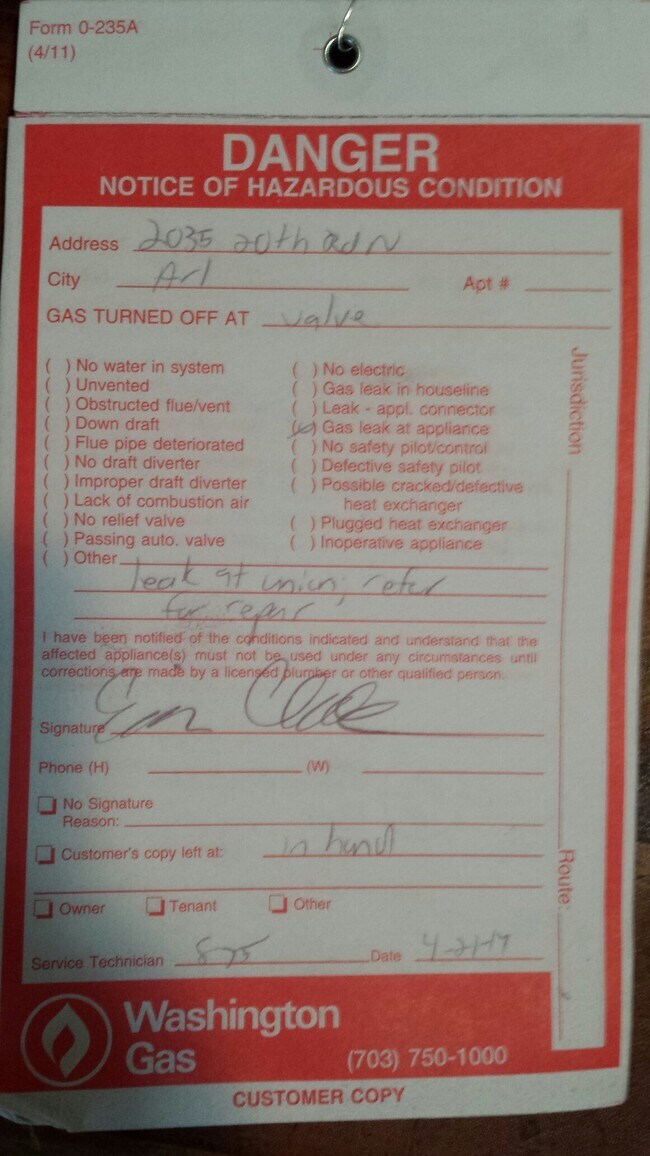 Form 0-235A
(4/11)
DANGER
NOTICE OF HAZARDOUS CONDITION
Address 2035 20th Rd N
City Arl Apt #
GAS TURNED OFF AT valve
( ) No water in system
( ) Unvented
( ) Obstructed flue/vent
( ) Down draft
( ) Flue pipe deteriorated
( ) No draft diverter
( ) Improper draft diverter
( ) Lack of combustion air
( ) No relief valve
( ) Passing auto. valve
( ) Other
( ) No electric
( ) Gas leak in houseline
( ) Leak - appl. connector
( ) Gas leak at appliance
( ) No safety pilot/control
( ) Defective safety pilot
( ) Possible cracked/defective
heat exchanger
( ) Plugged heat exchanger
( ) Inoperative appliance
leak at union; refer
for repair
I have been notified of the conditions indicated and understand that the
affected appliance(s) must not be used under any circumstances until
corrections are made by a licensed plumber or other qualified person.
Signature
Phone (H) (W)
No Signature
Reason:
Customer's copy left at: in hand
Owner Tenant Other
Service Technician Date 4-21-17
Jurisdiction
Route:
Washington
Gas
(703) 750-1000
CUSTOMER COPY